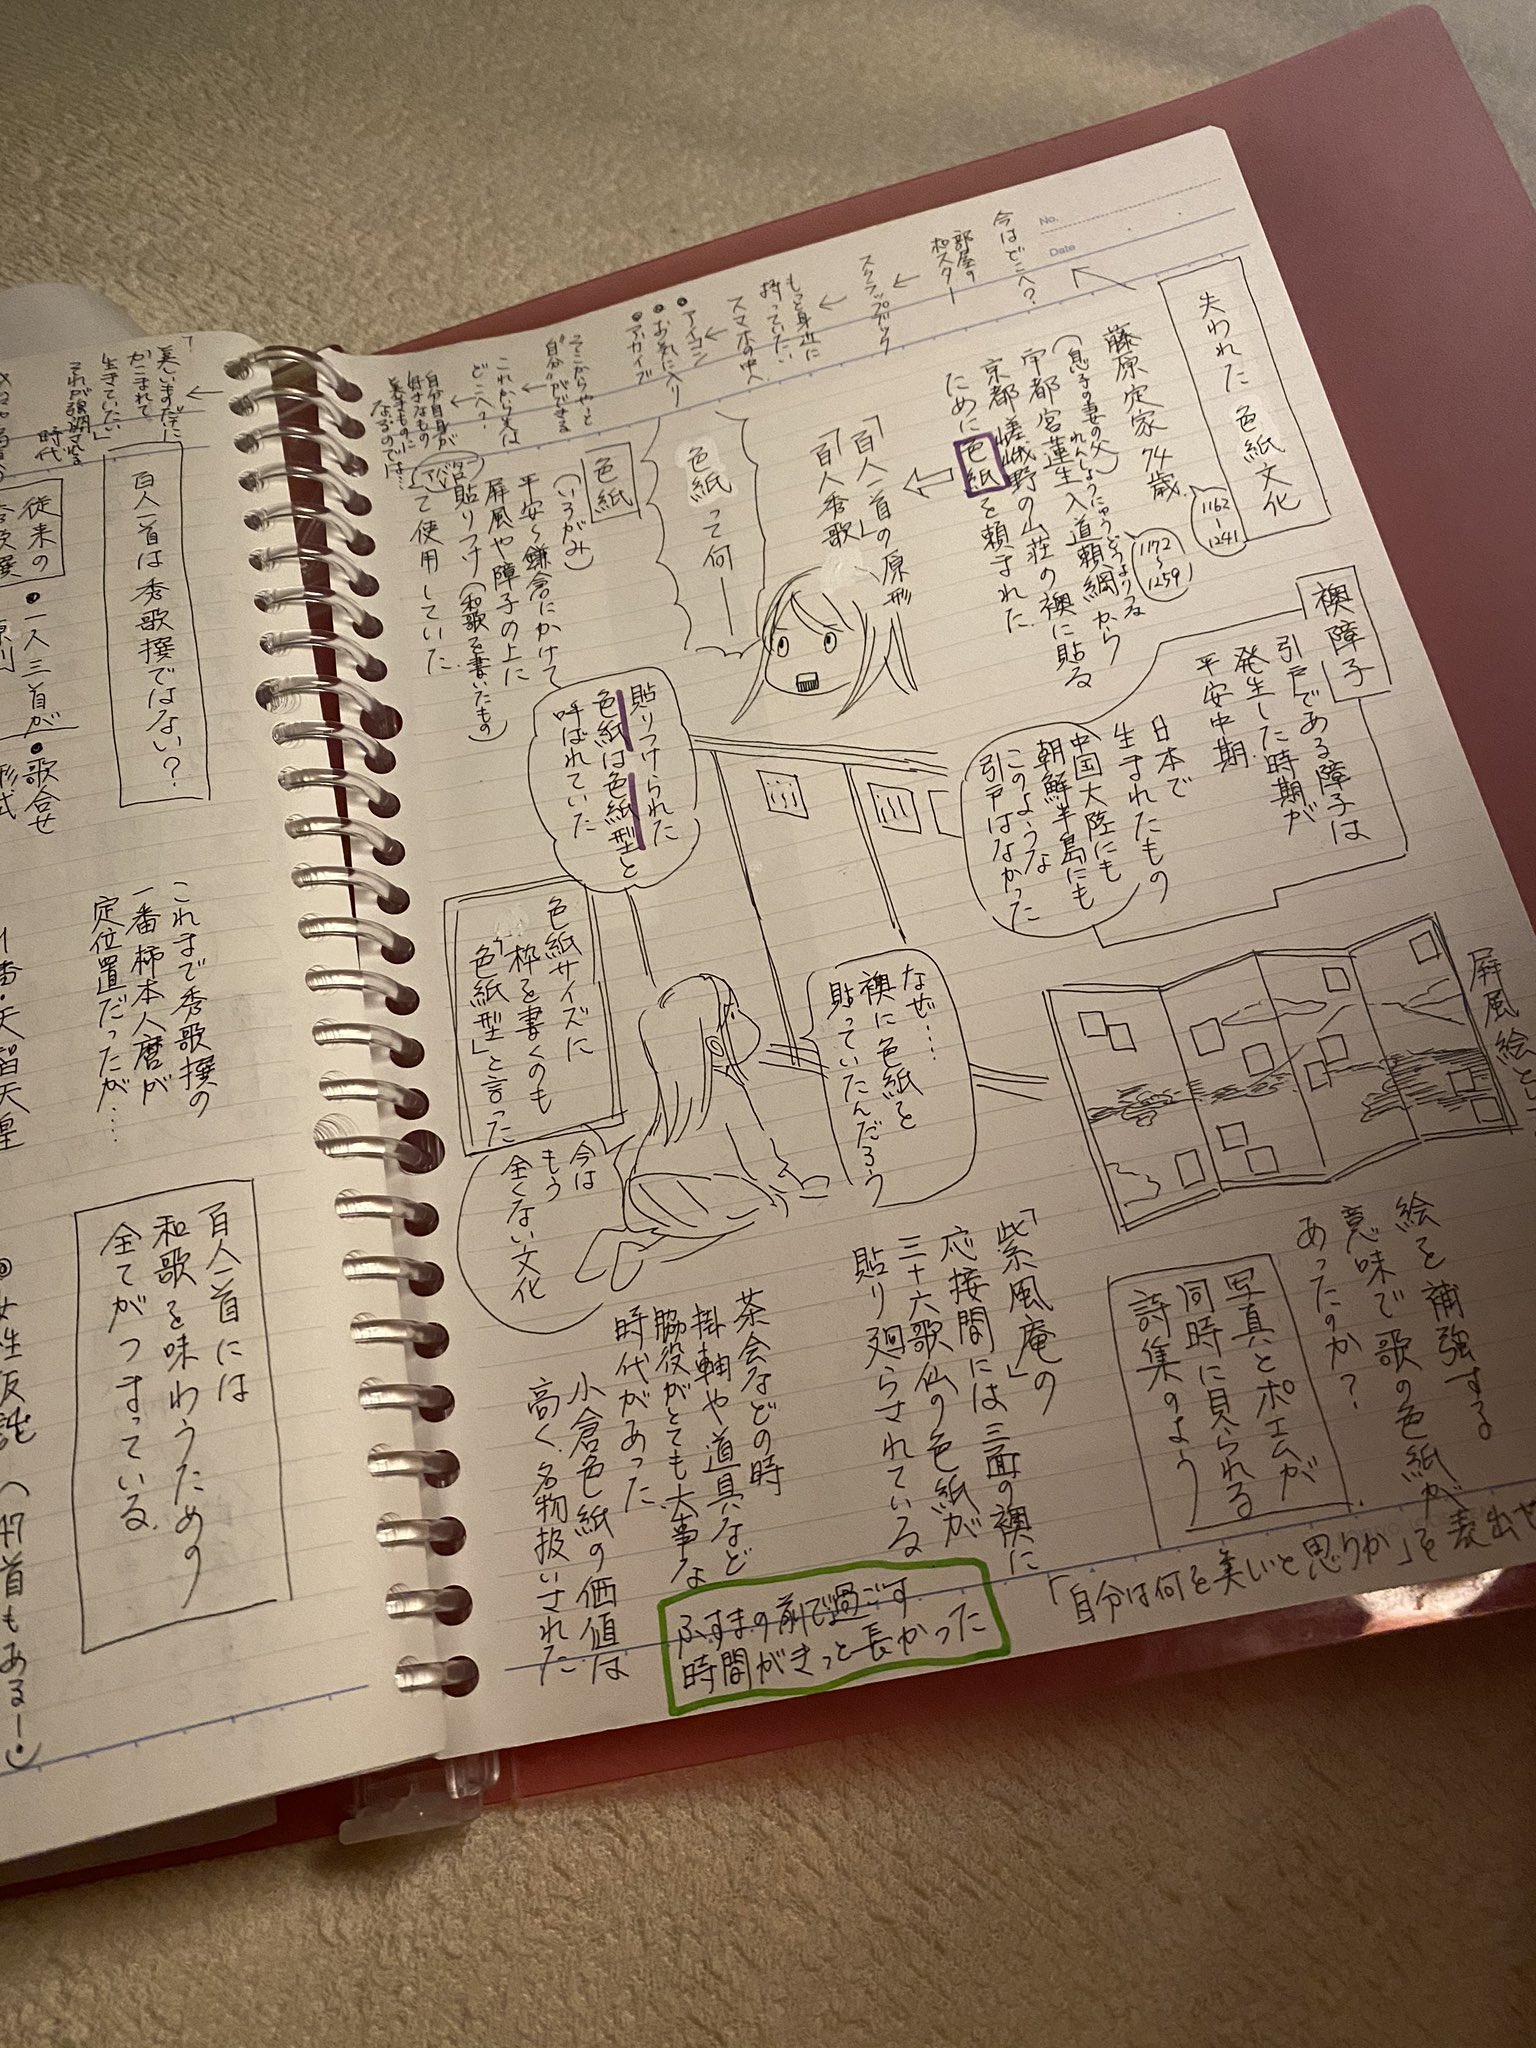 No.
Date
失われた 色紙 文化
藤原定家 74歳
1162
1241
(息子の妻の父)
れんしょうにゅうどうよりつな
宇都宮蓮生入道頼綱から
1172
〜
1259
京都嵯峨野の山荘の襖に貼る
ために色紙を頼まれた
「百人一首」の原形
「百人秀歌」
色紙って何ー
色紙
(いろがみ)
平安〜鎌倉にかけて
屏風や障子の上に
貼りつけ(和歌を書いたもの)
て使用していた
貼りつけられた
色紙は色紙型と
呼ばれていた
色紙サイズに
枠を書くのも
「色紙型」と言った
今は
もう
全くない文化
今はどこへ?
部屋の
ポスター
スクラップブック
もっと身近に
持っていたい
スマホの中へ
・アイコン
・お気に入り
・アカイブ
そこからやっと
"自分"ができる
これから次は
どこへ?
自分自身が
好きなもの
美きものに
なるのでは…
襖障子
引戸である障子は
発生した時期が
平安中期
日本で
生まれたもの
中国大陸にも
朝鮮半島にも
このような
引戸はなかった
なぜ…
襖に色紙を
貼っていたんだろう
絵を補強する
意味で歌の色紙が
あったのか?
写真とポエムが
同時に見られる
詩集のよう
「紫風庵」の
応接間には三面の襖に
三十六歌仙の色紙が
貼り廻らされている
茶会などの時
掛軸や道具など
脇役がとても大事な
時代があった
小倉色紙の価値は
高く、名物扱いされた
ふすまの前で過ごす
時間がきっと長かった
「自分は何を美しいと思うか」を表出せ
美しいものだけに
かこまれて
生きていたい」
それが強調される
時代
百人一首は秀歌撰ではない?
従来の
秀歌撰
・一人三首が
・歌合せ
形式
これまで秀歌撰の
一番柿本人麿が
定位置だったが…
百人一首には
和歌を味わうための
全てがつまっている